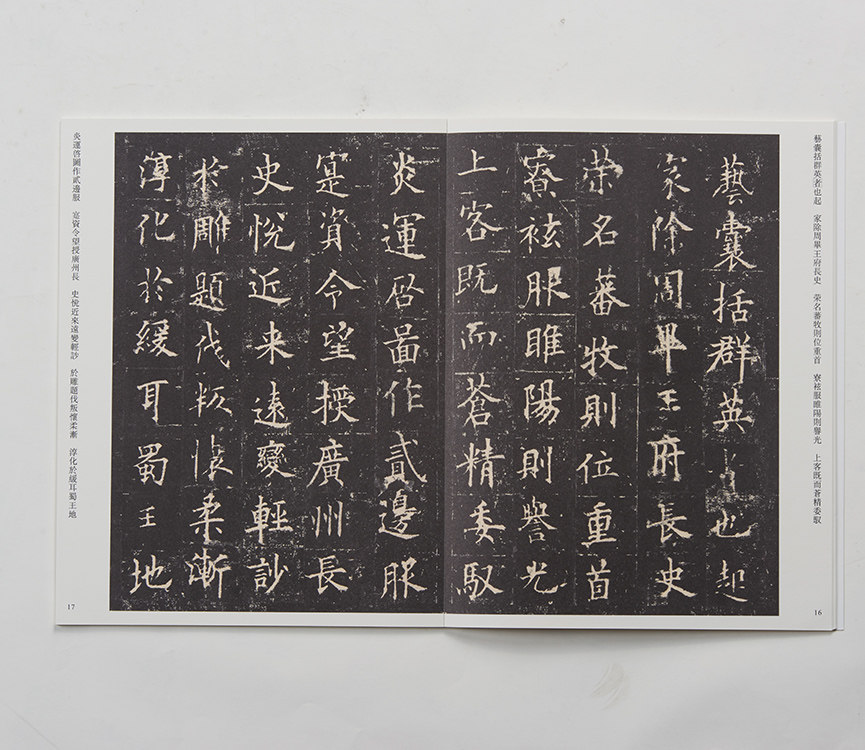 藝囊括群英者也起　家除周畢王府長史　荣名蕃牧則位重首　寮袨服睢陽則譽光　上客既而蒼精委馭
藝囊括群英者也起
家除周畢王府長史
荣名蕃牧則位重首
寮袨服睢陽則譽光
上客既而蒼精委馭
16
炎運啓圖作貳邊服
寔資令望授廣州長
史悦近来遠變輕訬
於雕題伐叛懷柔漸
淳化於緩耳蜀王地
炎運啓圖作貳邊服　寔資令望授廣州長　史悦近来遠變輕訬　於雕題伐叛懷柔漸　淳化於緩耳蜀王地
17